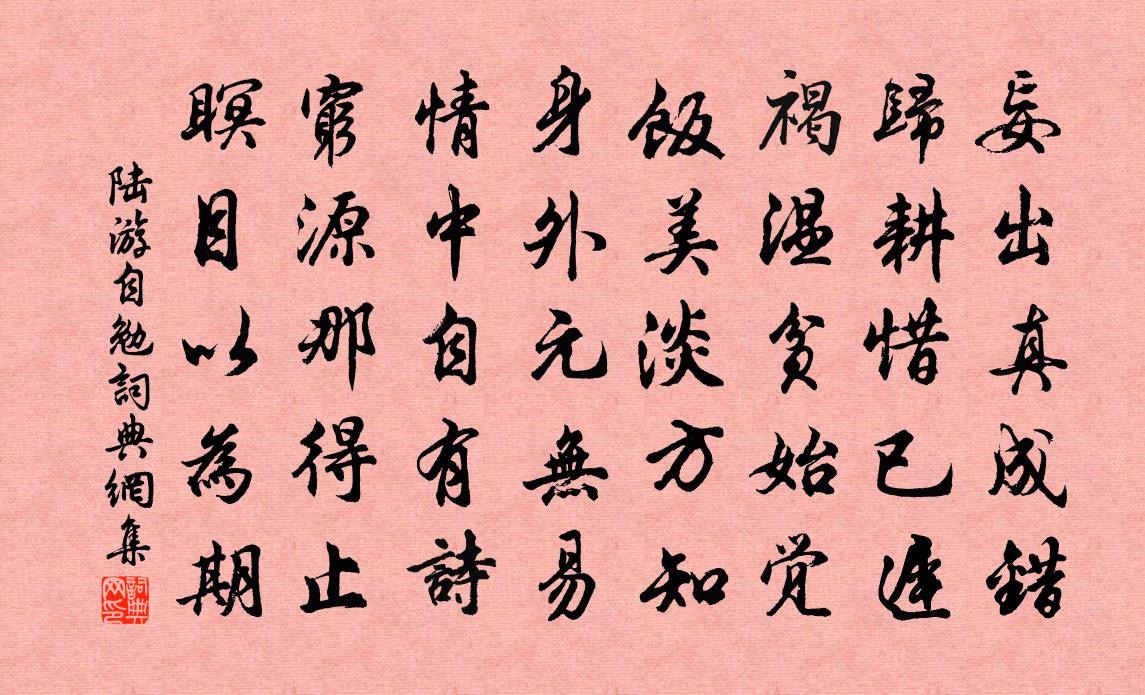 妄出真成錯
歸耕惜已遅
褐温貧始覚
飯美淡方知
身外元無易
情中自有詩
窮源那得止
瞑目以為期
陆游自勉詞典網集
詞典网印